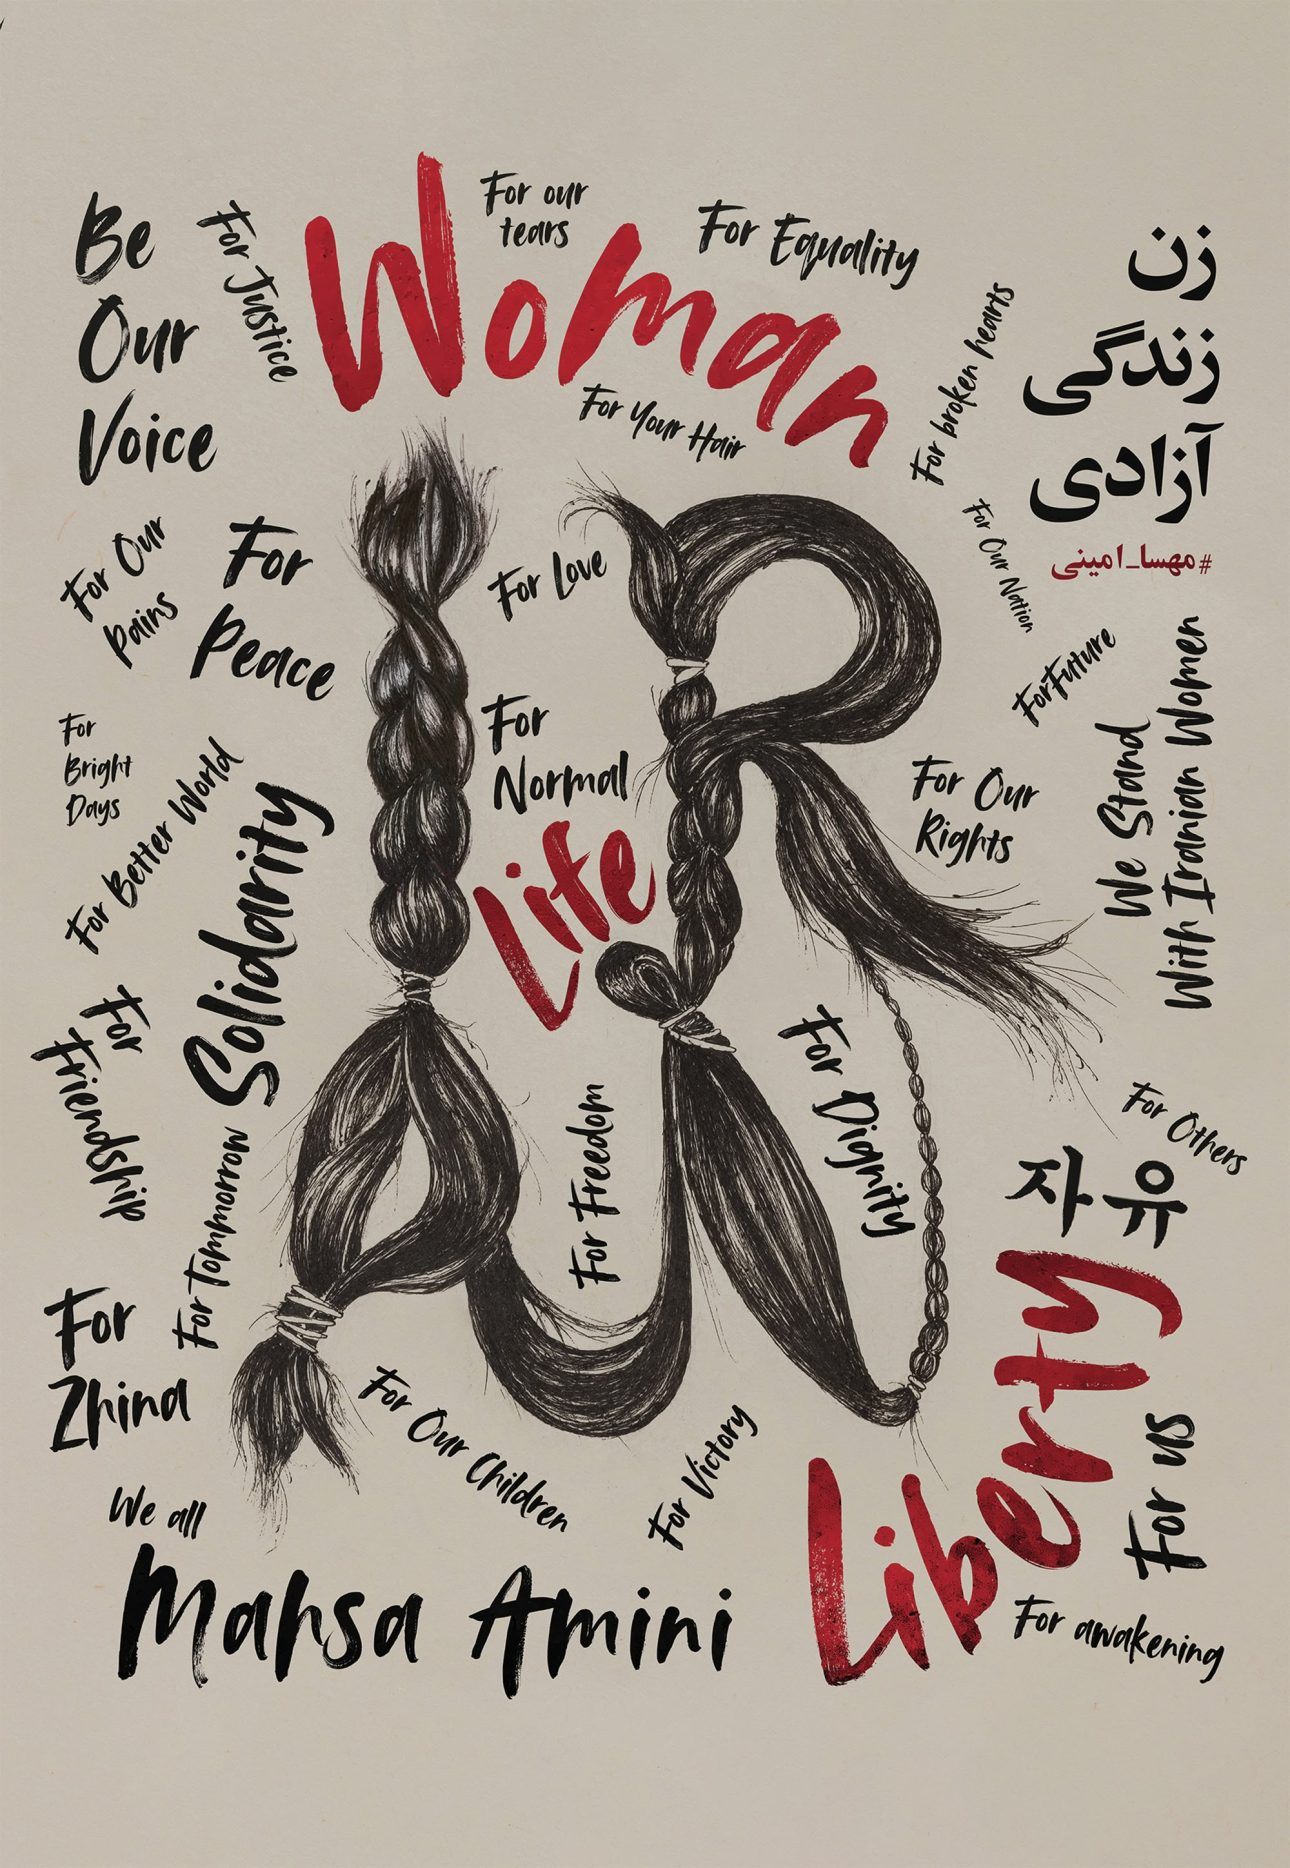 Be
Our
Voice
For Justice
Woman
For our
tears
For Equality
For Your Hair
For broken hearts
زن
زندگی
آزادی
#مهسا_امینی
For Our
Pains
For
Peace
For Love
For Our Nation
For Future
We Stand
With Iranian Women
For
Bright
Days
For Better World
Solidarity
For
Normal
Life
For Our
Rights
For
Friendship
For Tommorrow
For Freedom
For Dignity
For Others
자유
Liberty
For
Zhina
For Our Children
For Victory
For us
We all
Mahsa Amini
For awakening